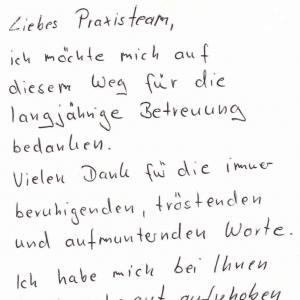 Liebes Praxisteam,
ich möchte mich auf
diesem Weg für die
langjährige Betreuung
bedanken.
Vielen Dank für die immer
beruhigenden, tröstenden
und aufmunternden Worte.
Ich habe mich bei Ihnen
gut aufgehoben